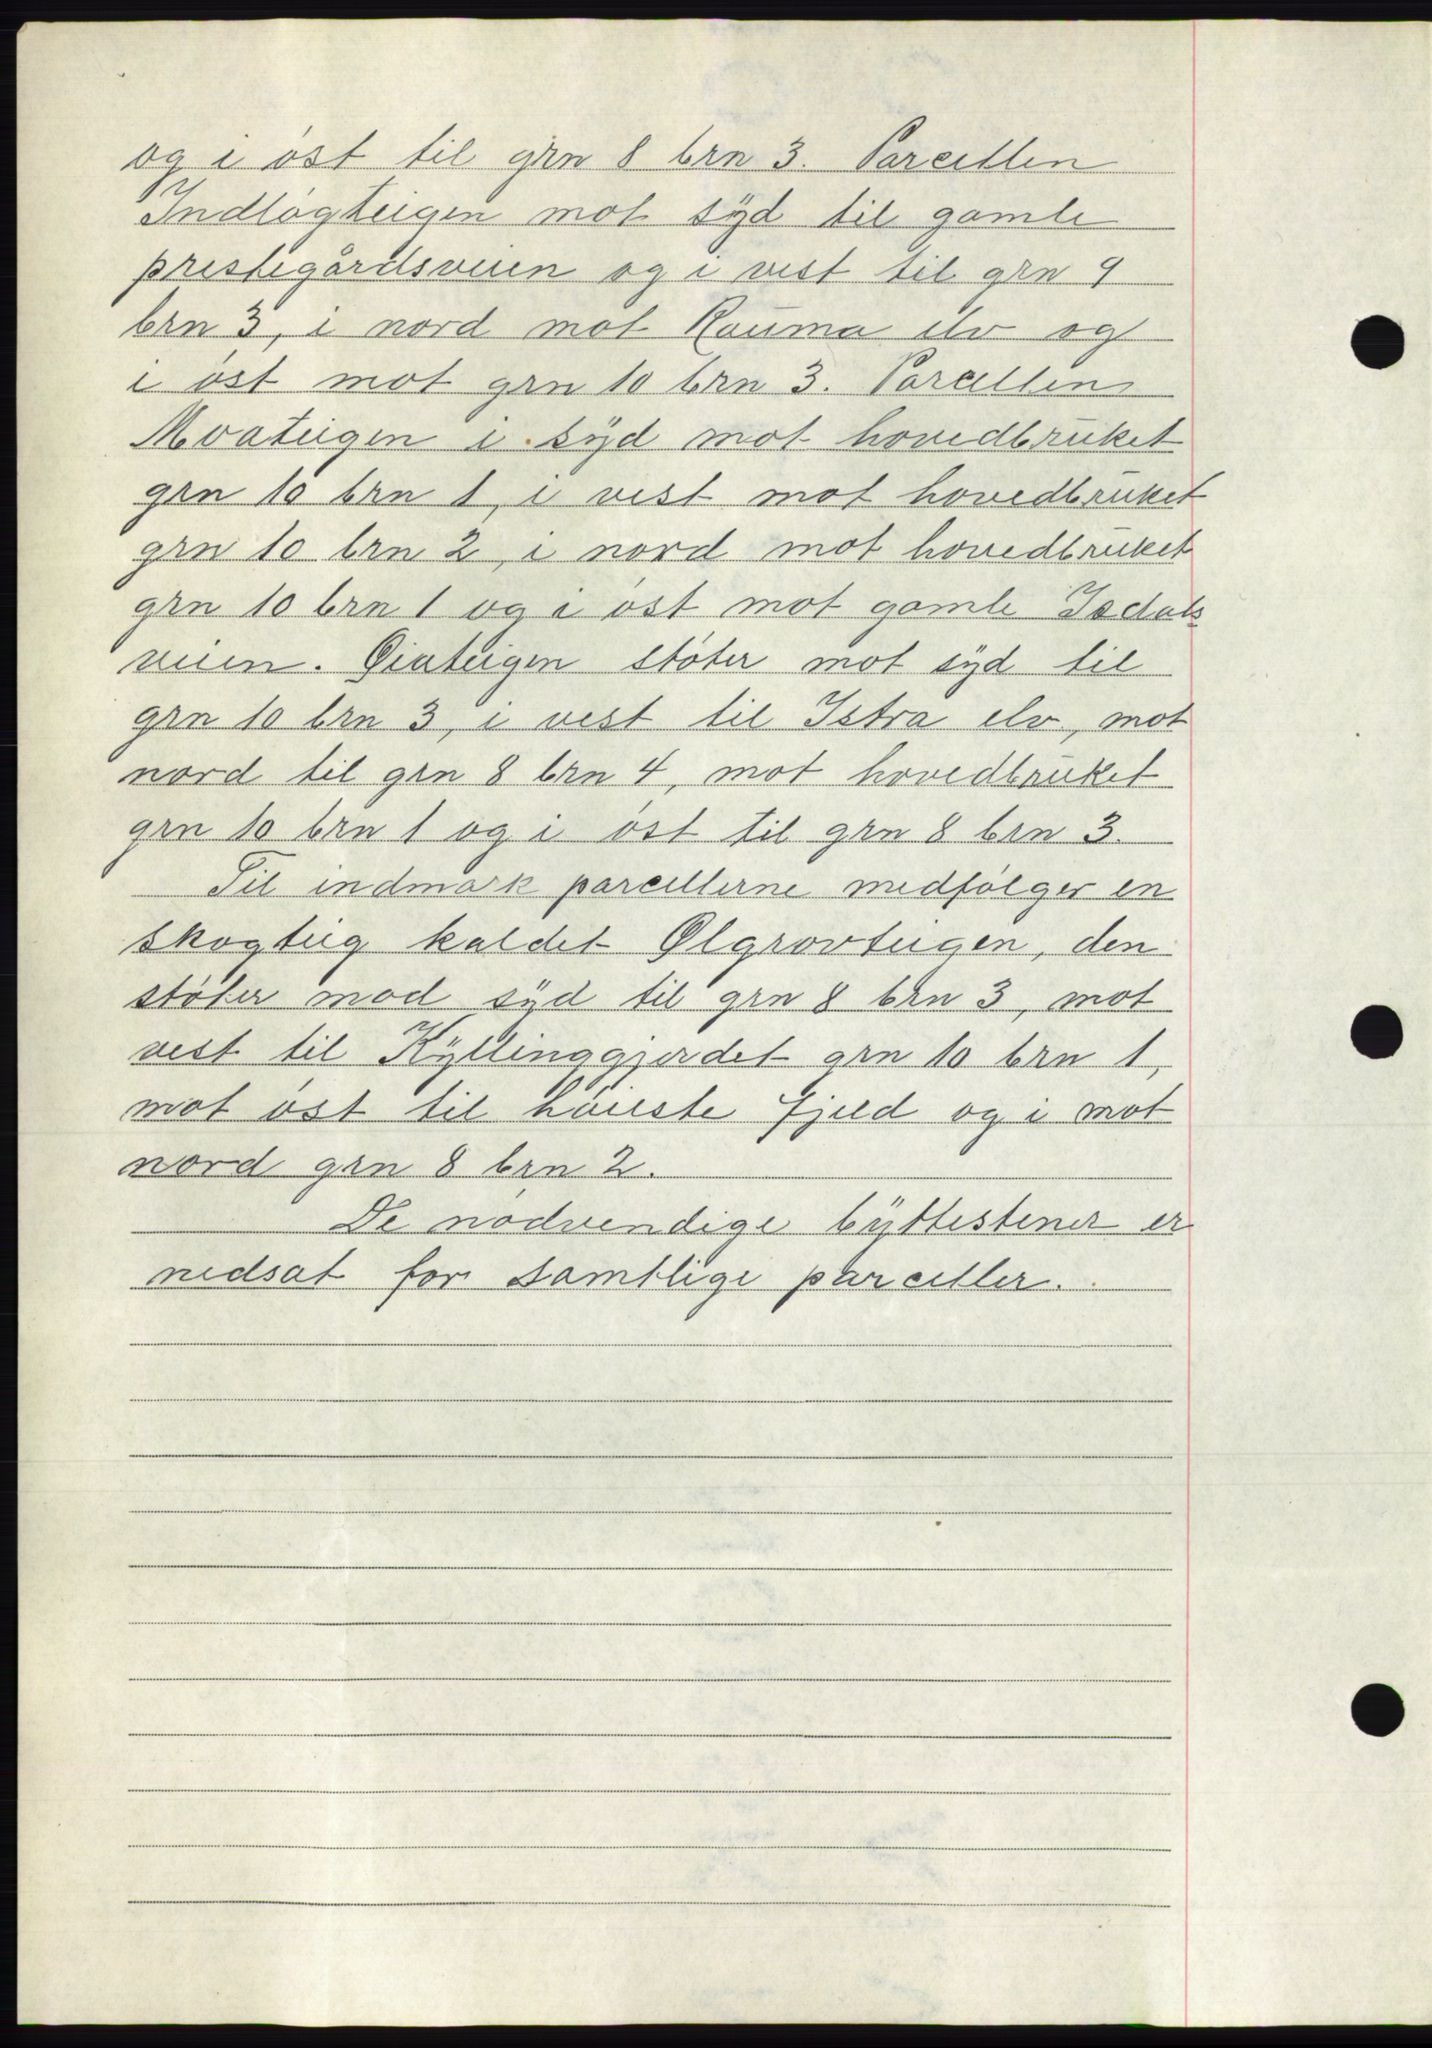 og i öst til grn 8 brn 3. Parcellen
Indlögteigen mot syd til gamle
prestegårdsveien og i vest til grn 9
brn 3, i nord mot Rauma elv og
i öst mot grn 10 brn 3. Parcellen
Moateigen i syd mot hovedbruket
grn 10 brn 1, i vest mot hovedbruket
grn 10 brn 2, i nord mot hovedbruket
grn 10 brn 1 og i öst mot gamle Isdals
veien. Öiateigen stöter mot syd til
grn 10 brn 3, i vest til Istra elv, mot
nord til grn 8 brn 4, mot hovedbruket
grn 10 brn 1 og i öst til grn 8 brn 3.
Til indmark parcellerne medfölger en
skogteig kaldet Ølgrovteigen, den
stöter mod syd til grn 8 brn 3, mot
vest til Kyllinggjerdet grn 10 brn 1,
mot öst til höieste fjeld og i mot
nord grn 8 brn 2.
De nödvendige byttestener er
nedsat for samtlige parceller.